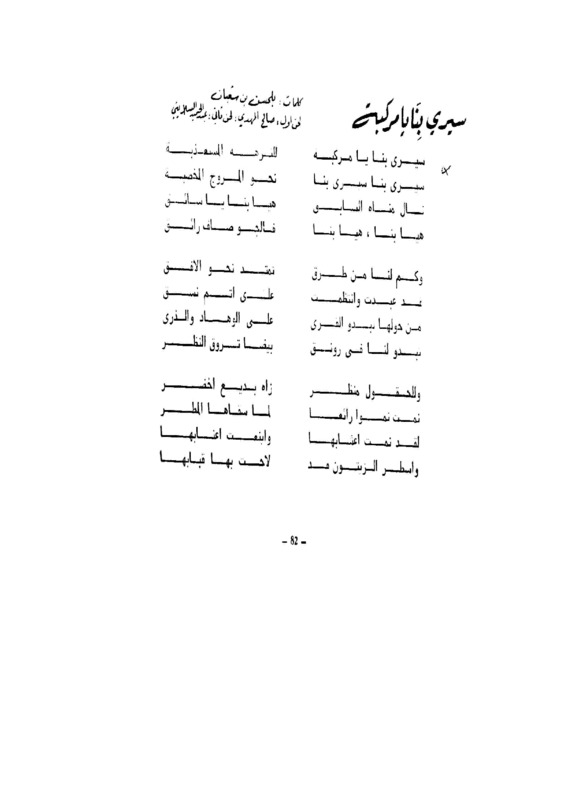 سيري بنا يا مركبة
كلمات : بلحسن بن شعبان
لحن أول : صالح المهدي : لحن ثاني :
سيرى بنا يا مركبه للنزهه المستعذبة
سيرى بنا سيرى بنا نحو المروج المخصبة
نال مناه السابق هيا بنا يا سائق
هيا بنا ، هيا بنا فالجو صاف رائق
وكم لنا من طرق تمتد نحو الافق
قد عبدت وانتظمت على اتم نسق
من حولها تبدو القرى على الوهاد والذرى
تبدو لنا فى رونق بيضا تروق النظر
وللحقول منظر زاه بديع اخضر
نمت نموا رائعا لما سقاها المطر
لقد نمت اعنابها واينعت اعنابها
واسطر الزيتون قد لاحت بها قبابها
– 82 –